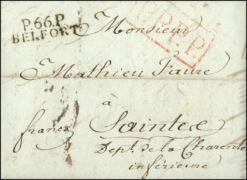 P.66.P.
BELFORT
Monsieur
P.P.
Mathieu Faure
à
franco Saintes
Dept. de la Charente
inférieure